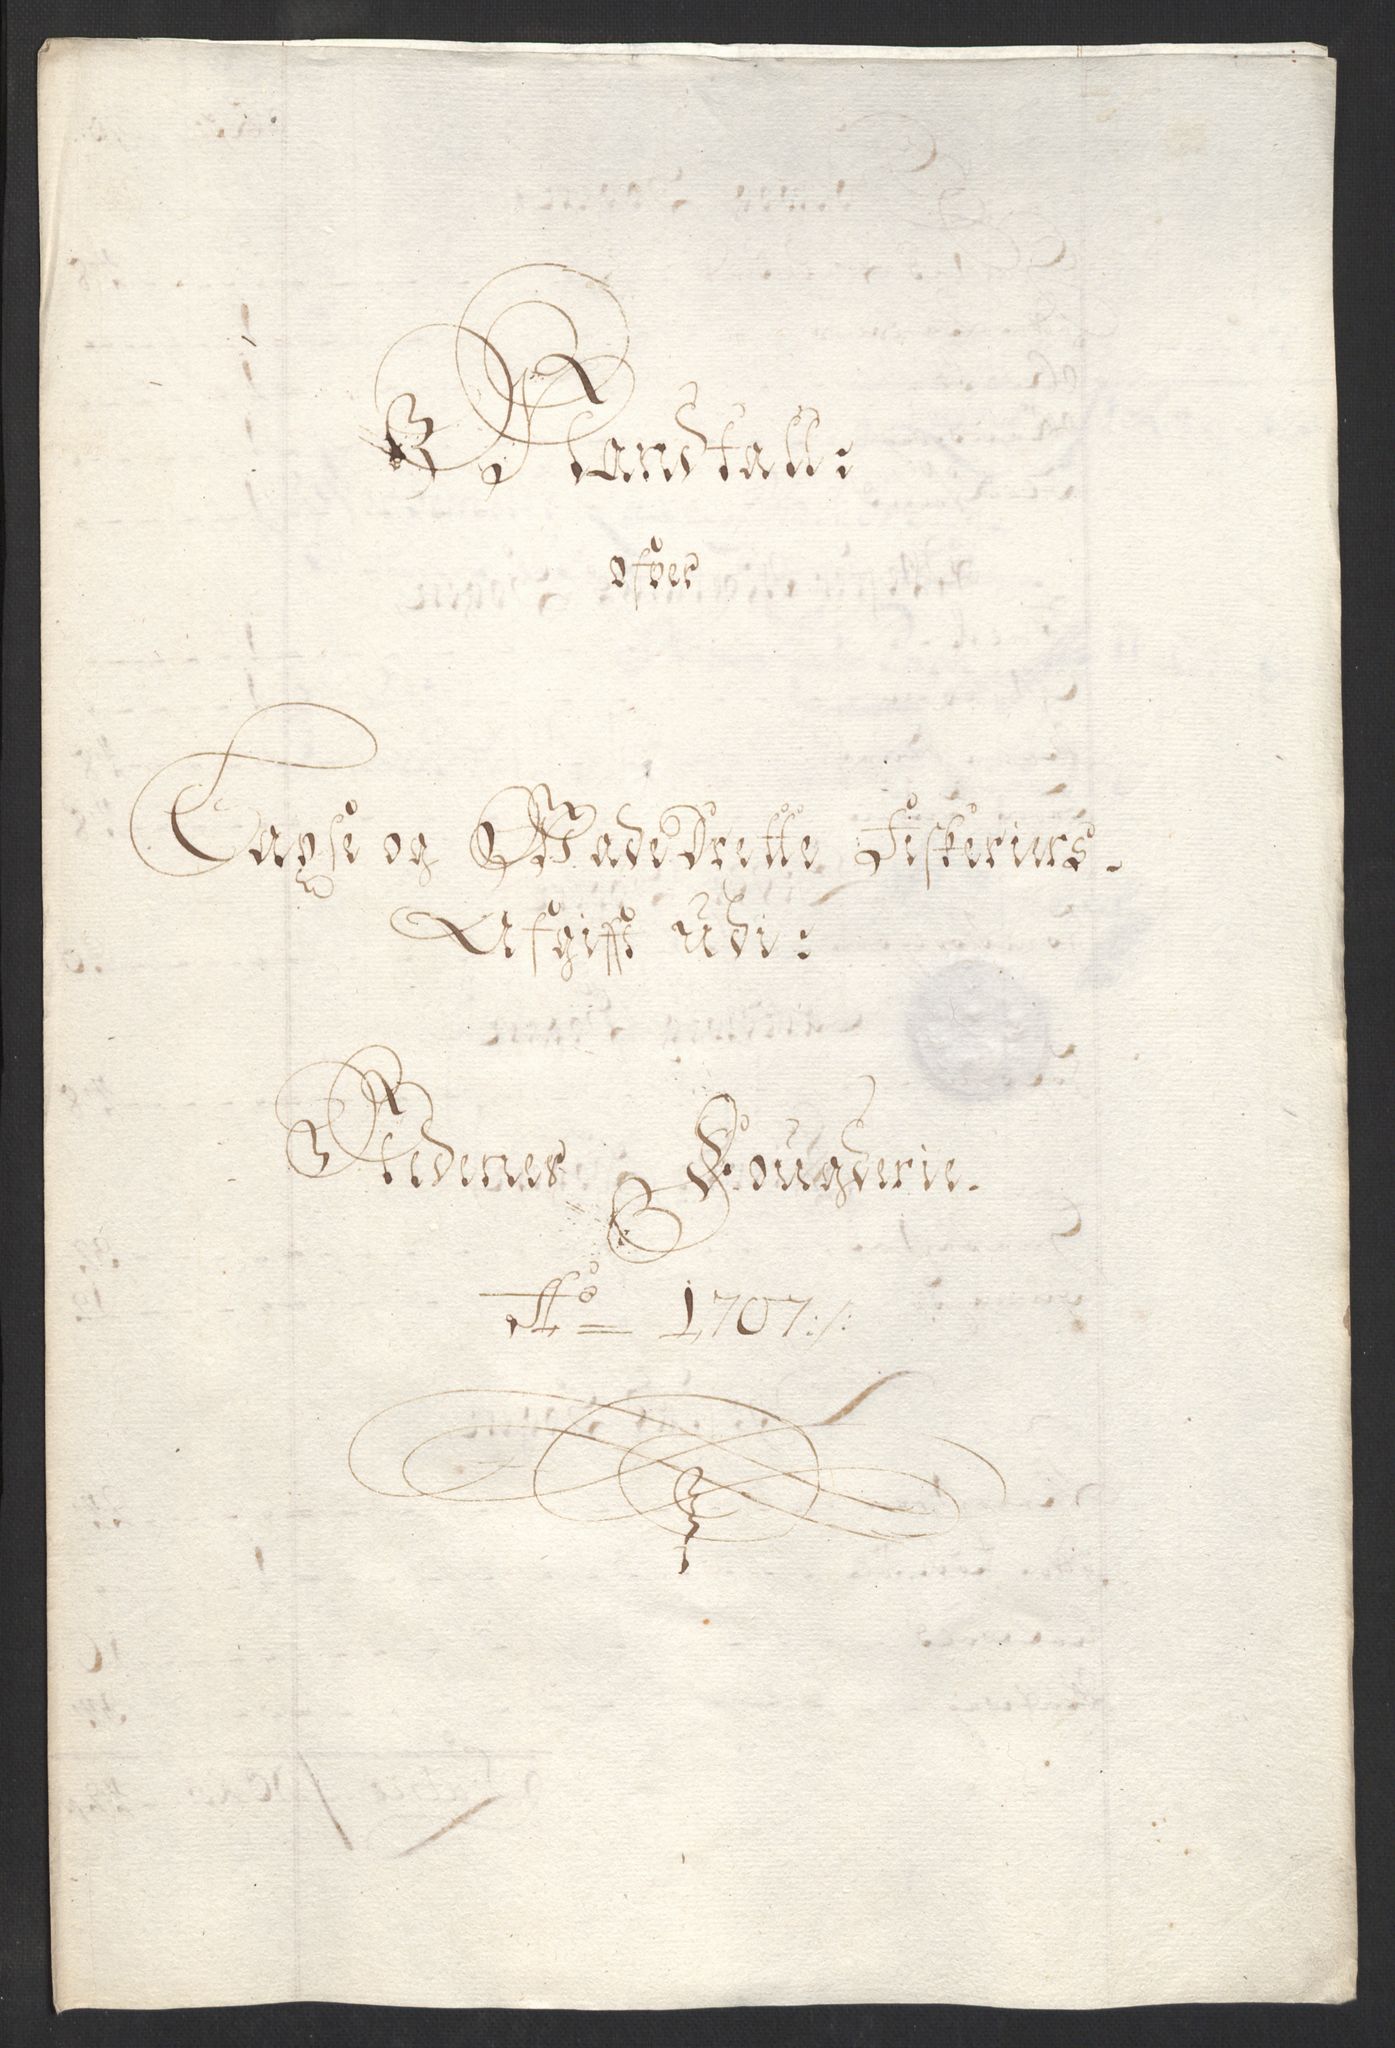 Mandtall:
ofver
Laxse og WadeDrette Fiskeriers
Afgifft udi:
Nedenes Fougderie.
Ao 1707:/: